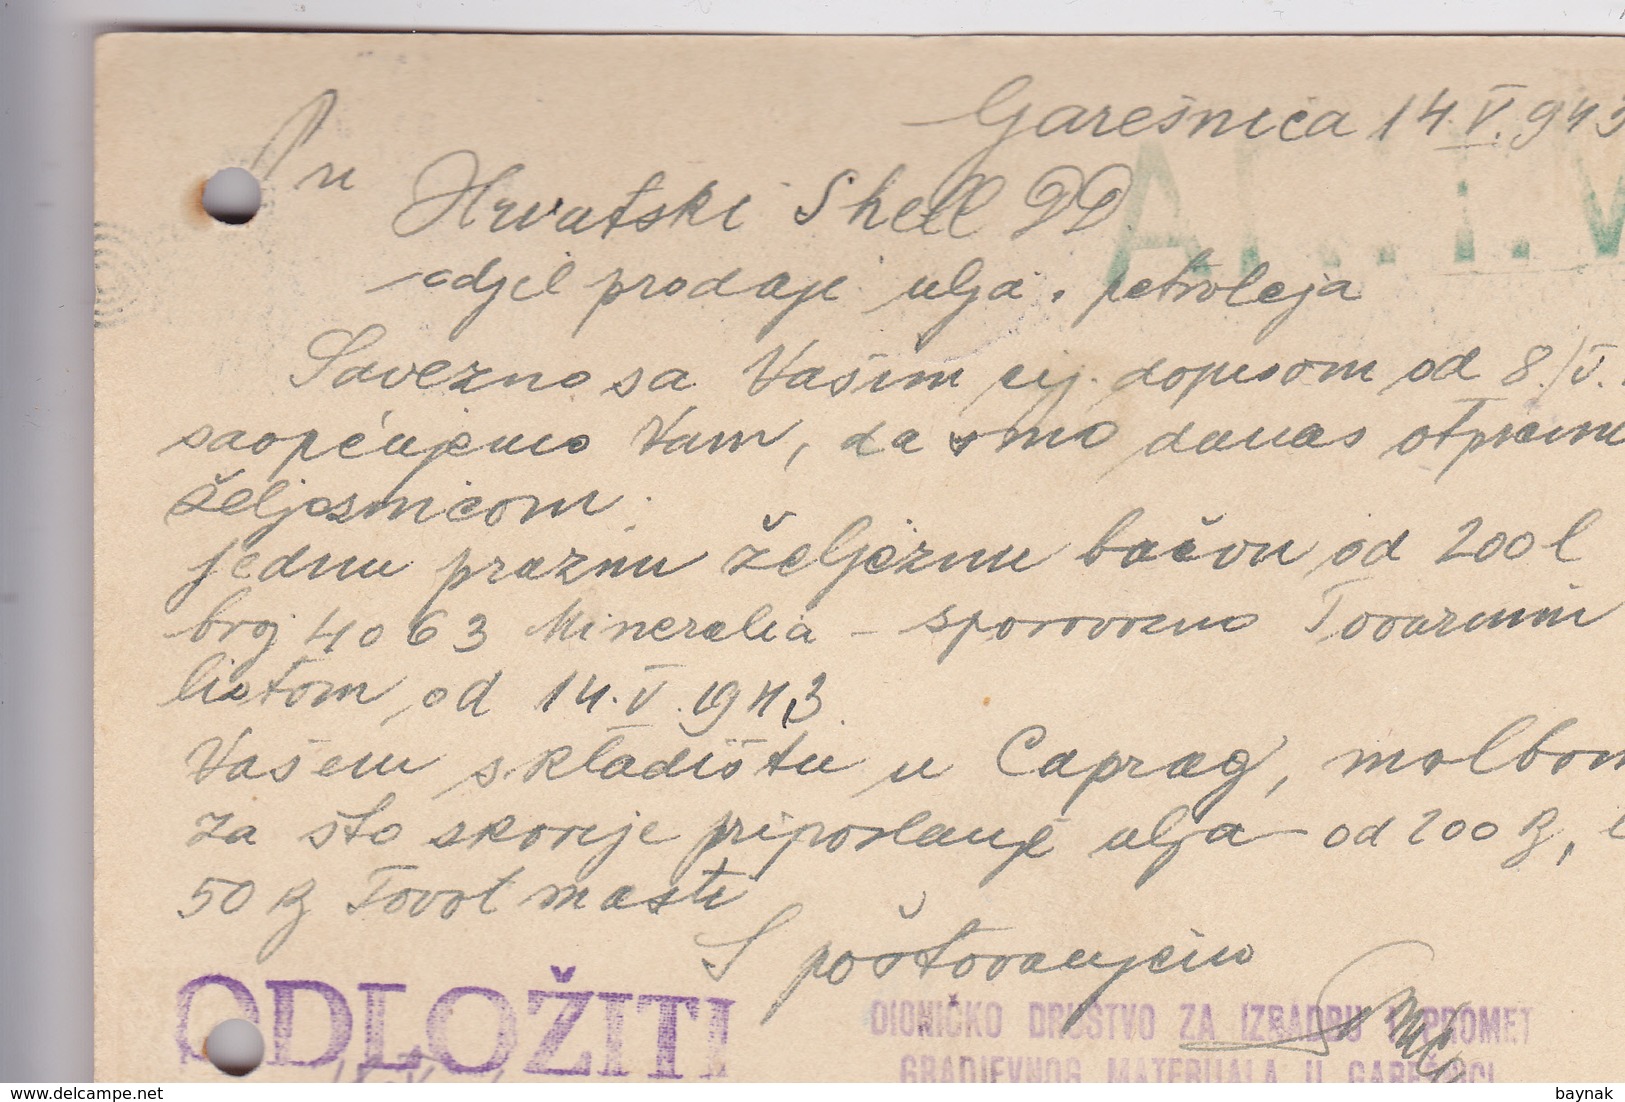 Garešnica 14.V.943
Hrvatski Shell DD.
odjel prodaje ulja i petroleja
Savezno sa Vašim cij. dopisom od 8./V.
saopćujemo Vam, da smo danas otpremi
željeznicom:
jednu praznu željeznu bačvu od 200 l
broj 4063 Mineralia – sprovozno Tovarnim
listom od 14.V.1943.
Vašem skladištu u Caprag, molbom
za što skorije priposlanje ulja od 200 kg, i
50 kg Tovot masti
S poštovanjem
ODLOŽITI
DIONIČKO DRUŠTVO ZA IZRADBU I PROMET
GRAĐEVNOG MATERIJALA U GAREŠNICI
baynak